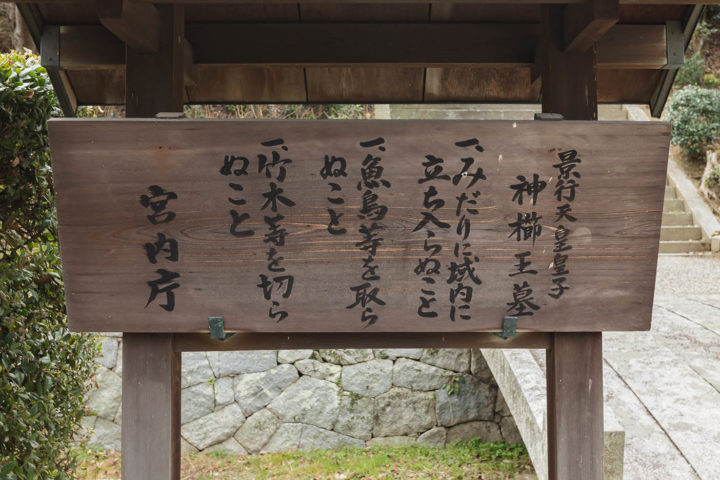 景行天皇皇子
神櫛王墓
一、みだりに域内に
立ち入らぬこと
一、魚鳥等を取ら
ぬこと
一、竹木等を切ら
ぬこと
宮内庁